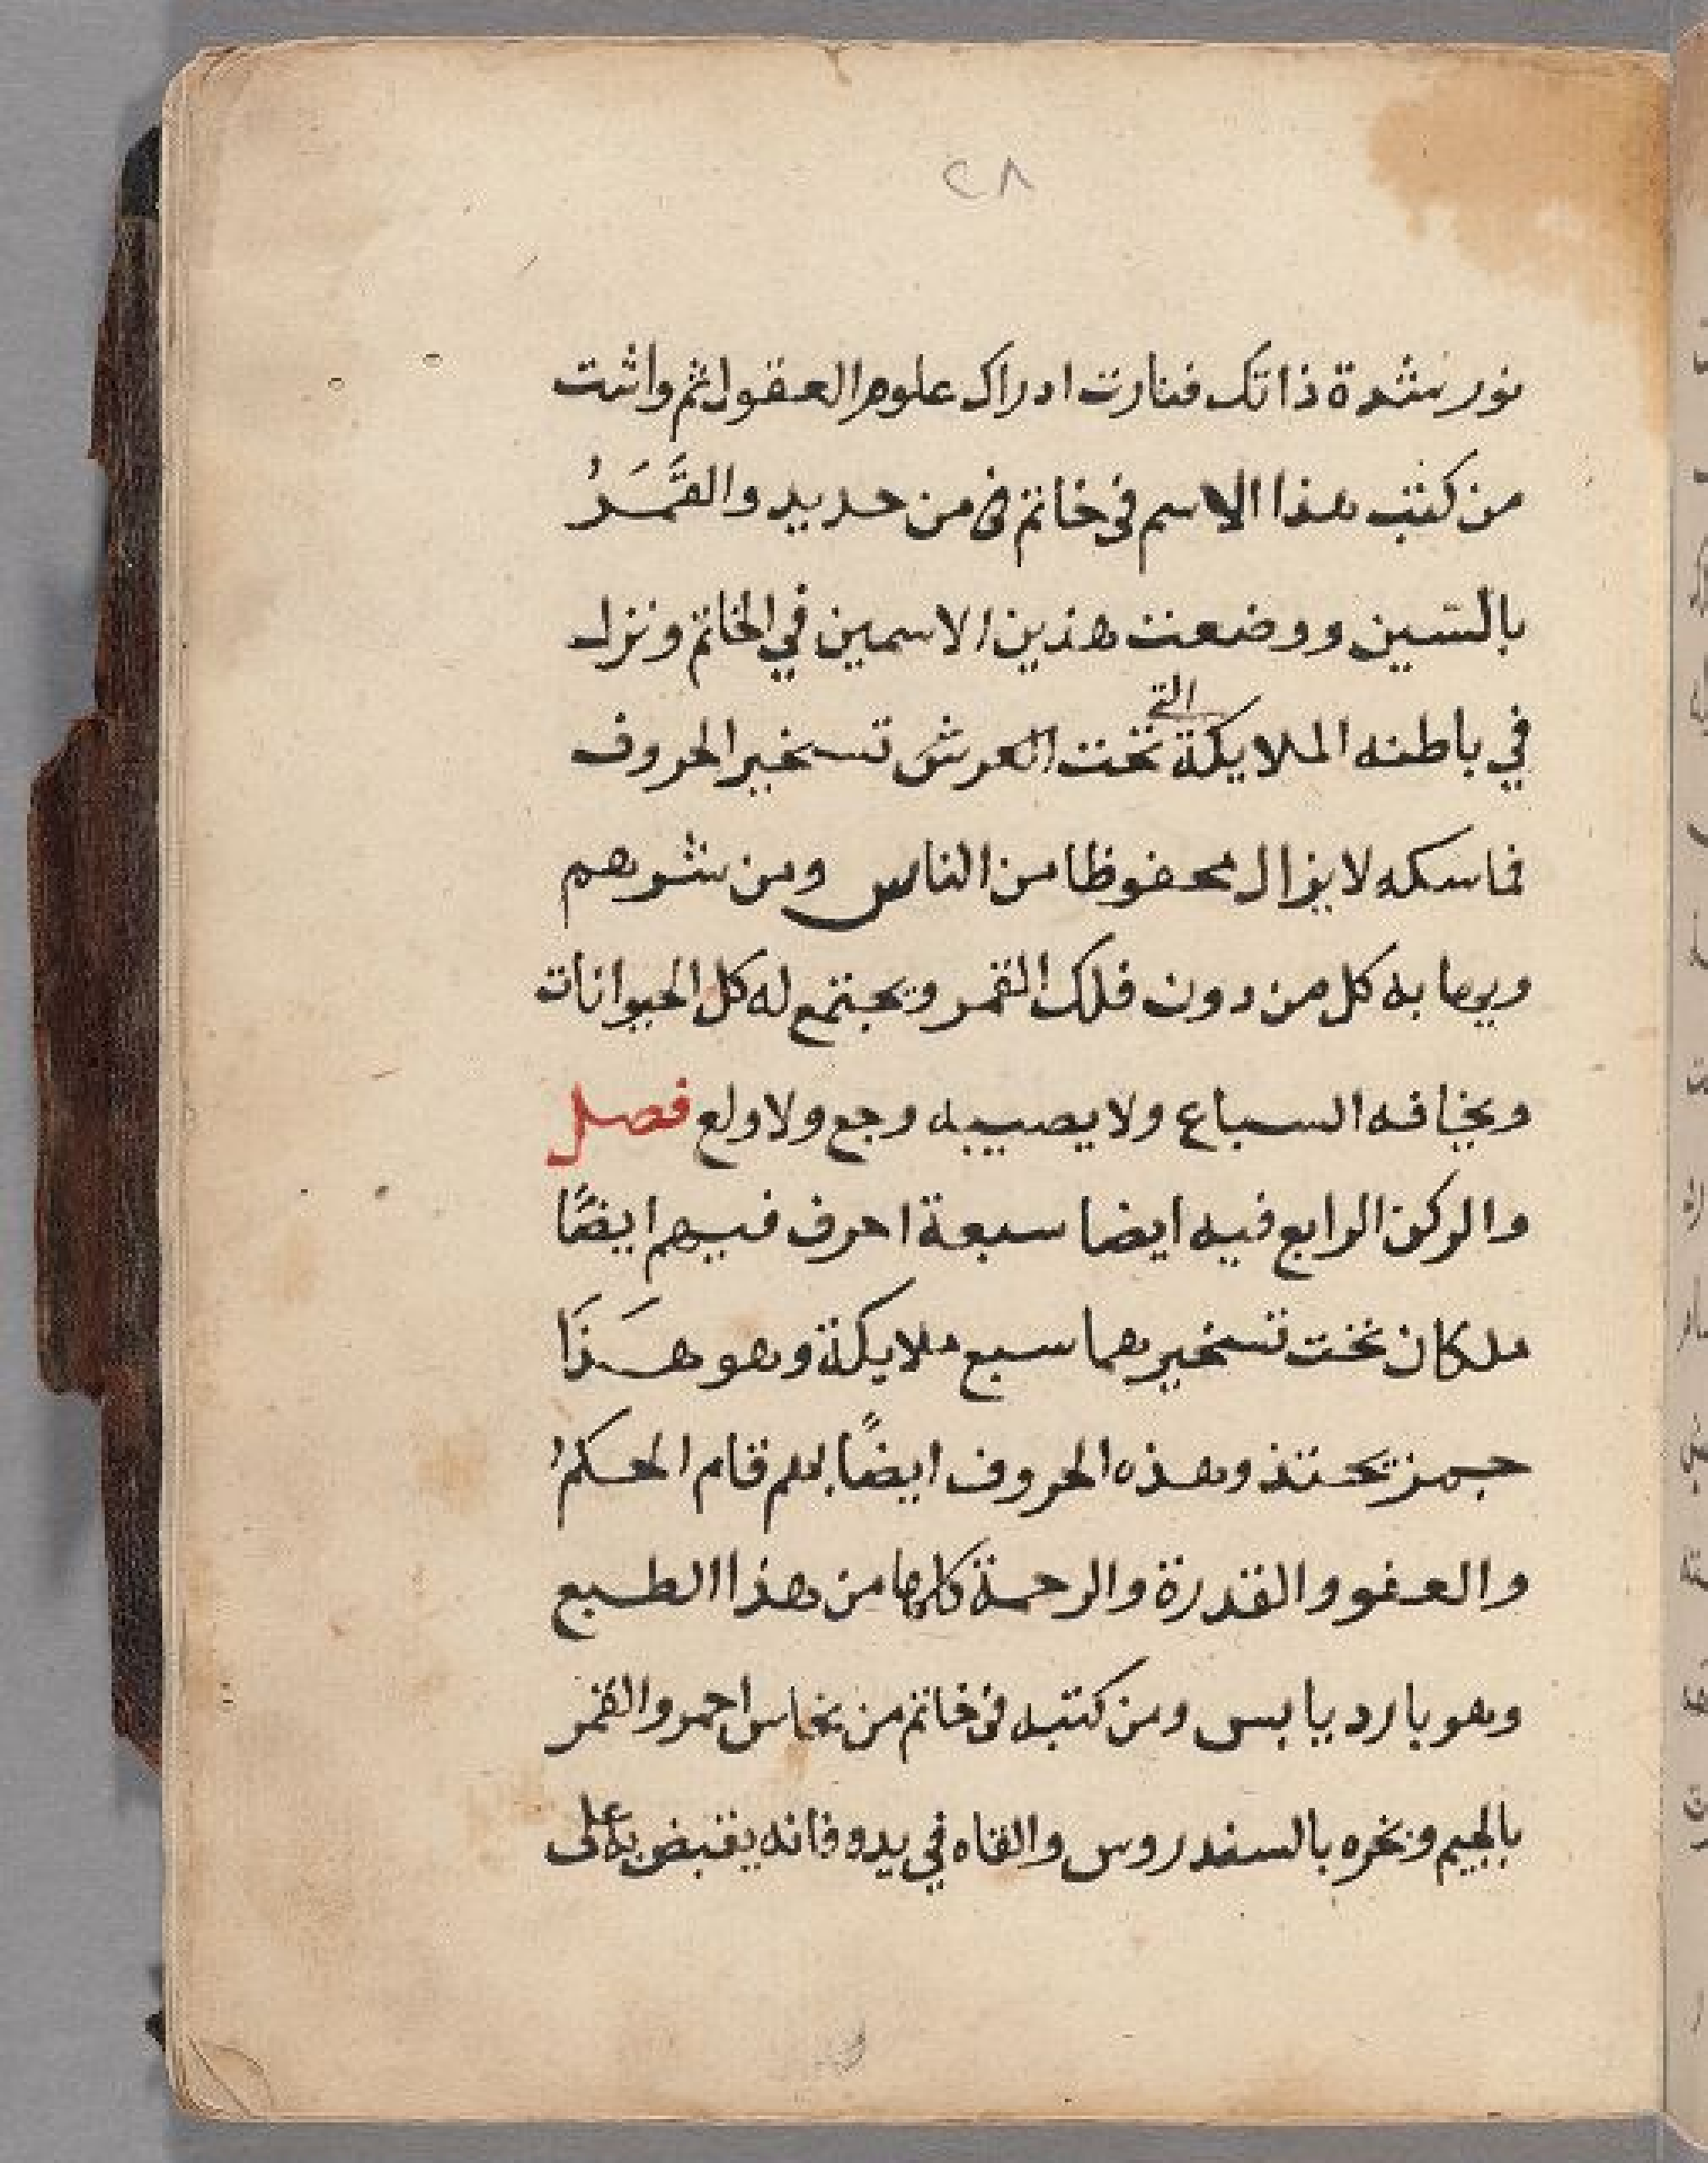 ٢٨
نور شدة ذاتك فنارت ادراك علوم العقول ثم واثبت
من كتب هذا الاسم في خاتم من حديد والقَمَرُ
بالسين ووضعت هذين الاسمين في الخاتم ونزل
في باطنه الملايكة التي تحت العرش تسخير الحروف
فماسكه لا يزال محفوظا من الناس ومن شرهم
ويهابه كل من دون فلك القمر ويجتمع له كل الحيوانات
ويخافه السباع ولا يصيبه وجع ولا ولع فصل
والركن الرابع فيه ايضا سبعة احرف فيهم ايضًا
ملكان تحت تسخيرهما سبع ملايكة وهو هَذَا
وهذه الحروف ايضًا لهم قام الحكم
والعفو والقدرة والرحمة كلها من هذا الطبع
وهو بارد يابس ومن كتبه في خاتم من نحاس احمر والقمر
بالجيم وبخره بالسندروس والقاه في يده فانه يقبض به على